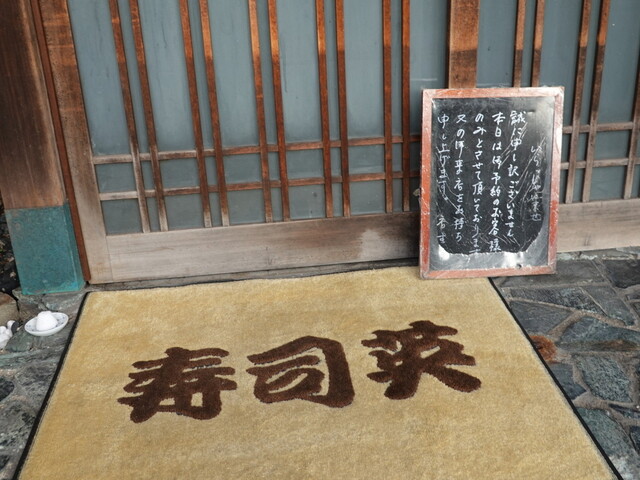 誠に申し訳ございません
本日は御予約のお客様
のみとさせて頂いております
又の御来店をお待ち
申し上げます
寿司英